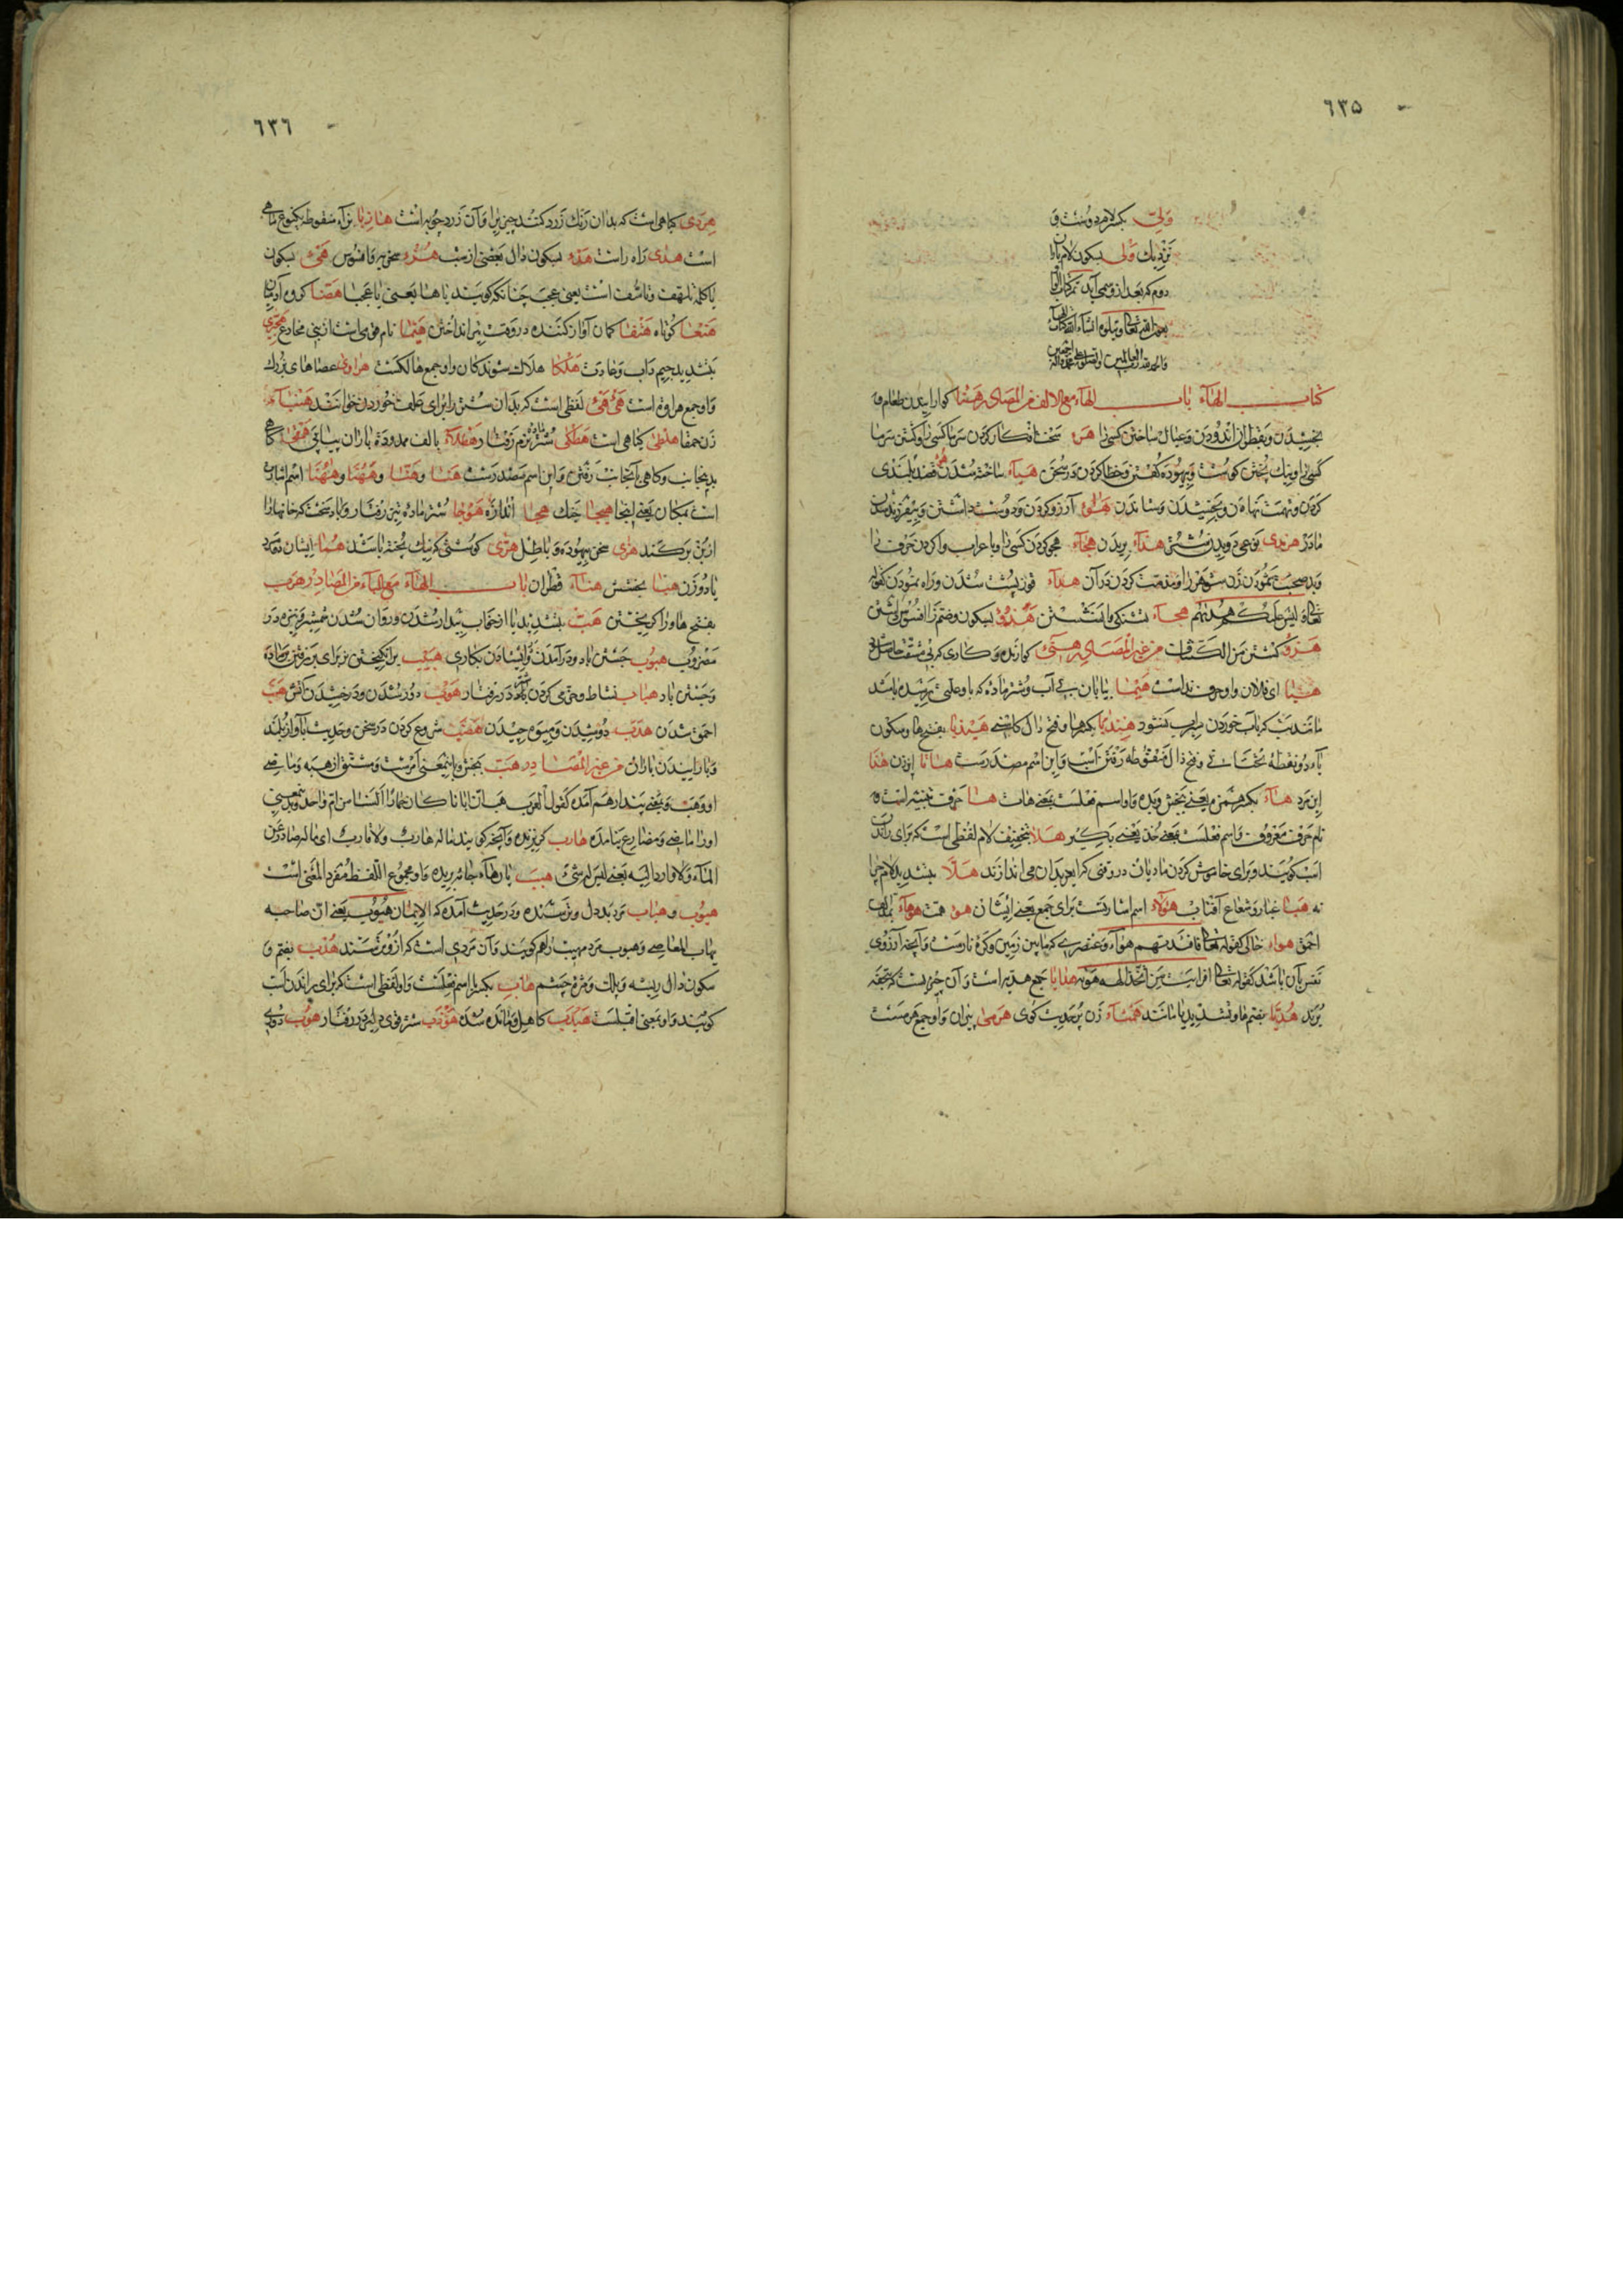 ٦٣٥
ولی بکسر لام مرد دوست و
نزدیک ولی بسکون لام باران
دوم که بعد از وسمی آید تم کتاب الواو
بعون الله تعالی ویتلوه انشاء الله کتاب الهاء
والحمد لله رب العالمین والصلوة علی محمد وآله اجمعین
کتاب الهاء باب الهاء مع الالف من المصادر هضا کوارانیدن طعام و
بخشیدن وبقطران اندودن وعیال ساختن کسی را هرء سخت افکار کردن سرما کسی را وکشتن سرما
کسی را ونیک پختن کوشت وبیهوده کفتن وخطا کردن در سخن هیاء ساخته شدن هم قصد بلندی
کردن ونهمت نهادن وبخشیدن وستاندن هوی آرزو کردن ودوست داشتن وبی فرزند شدن
مادر هربذی نوعی دویدن شتر هذاء بریدن هجاء هجو کردن کسی را وبا عراب وا کردن حرف را
وبد صحبت نمودن زن شوهر را ومذمت کردن در آن هداء قوز پشت شدن وراه نمودن کقوله
تعالی لیس علیک هدیهم هجاء تشنکی وا نشستن هزؤ بسکون وضم زا افسوس داشتن
هرو کشتن من الکنایات من غیر المصادر هنئ کوارنده وکاری که بی مشقت حاصل شود
هیا ای فلان واو حرف نداست هیما بیابان بی آب وشتر ماده که با وعلتی رسیده باشد
مانند تب که بآب خوردن سیراب نشود هندبا بکسر ها وفتح دال کاسنی هیذبا بفتح ها وسکون
یاء دو نقطه تحتانی وفتح ذال منقوطه رفتن اسب واین اسم مصدرست هانا اوزن هذا
این مرد هاء بکسر همزه یعنی بخش وبده واو اسم فعلست بمعنی هات ها حرف تنبیه است و
نام حرف معروف واسم فعلست بمعنی خذ یعنی بکیر هلا بتخفیف لام لفظی است که برای راندن
اسب کویند وبرای خاموش کردن مادیان در وقتی که ایغر بدان می اندازند هلا بتشدید لام چرا
نه هبا غبار وشعاع آفتاب هؤلاء اسم اشارتست برای جمع یعنی ایشان هو همت هوهاء بمد الف
احمق هواء خالی کقوله تعالی وافئدتهم هواء وعنصری که مابین زمین وکره نارست وآنچه آرزوی
نفس بآن باشد کقوله تعالی افرایت من اتخذ الهه هویه هدایا جمع هدیه است وآن چیزیست که تحفه
برند هدیا بضم ها وتشدید یا مانند هیماء زن پر حدیث کوی هرمی پیران واو جمع هرمست
٦٣٦
هردی کیاهی است که بدان رنک زرد کنند چیزیرا وآن زردچوبه است هازبا بزاء منقوطه یکنوع ماهی
است هدی راه راست هدء بسکون دال بعضی از شب هزء سخریه وافسوس هئ بسکون
یا کلمه تلهف وتاسف است یعنی عجب چنانکه کویند یا هیا یعنی یا عجبا هصا کروه آدمیان
هنعا کوتاه هتفا کمان آواز کننده در وقت تیر انداختن هیما نام قومی است از بنی مجادع هجیری
بتشدید جیم داب وعادت هلکا هلاک شوندکان واو جمع هالکست هراوی عصاهای بزرک
واو جمع هراوة است هئ هئ لفظی است که بدان شتر را برای علف خوردن خوانند هنباء
زن حمقا هلثی کیاهی است هطلی شتر نرم رفتار هطلاء بالف ممدوده باران پیاپی همجی کاهی
بدینجانب وکاهی بآنجانب رفتن واین اسم مصدرست هنا وهنا وههنا وههنا اسم اشارت
است بمکان یعنی اینجا هیجا جنک هجا اندازه هوجا شتر ماده تیز رفتار وباد سخت که خانها را
از بن برکند هرای سخن بیهوده وباطل هرئ کوشتی که نیک پخته باشد هما ایشان دو مرد
یا دو زن هبا بخشش هناء قطران باب الهاء مع الباء من المصادر هرب
بفتح ها ورا کریختن هب بتشدید با از خواب بیدار شدن وروان شدن شمشیر ونیزه در
مضروب هبوب جستن باد ودر آمدن وایستادن بکاری هبیب برانکیختن نر برای برفتن بر ماده
وجستن باد هباب نشاط وخرمی کردن در رفتار هوب دور شدن ودرخشیدن آتش هبت
احمق شدن هدب دوشیدن ومیوه چیدن هضب شروع کردن در سخن وحدیث بآواز بلند
وبارانیدن باران من غیر المصادر هب بخش وباین معنی امرست ومشتق از هبه وماضی
او وهب وبمعنی پندار هم آمده کقول العرب هب ان ابانا کان حمارا السنا من ام واحدة وبدین معنی
او را ماضی ومضارع نیامده هارب کریزنده وآنچه کویند ماله هارب ولا قارب ای ماله صادر عن
الماء ولا وارد الیه یعنی لیس له شیء هبب پارهاء جامه بریده واو مجموع اللفظ مفرد المعنی است
هیوب وهیاب مرد بد دل وترسنده ودر حدیث آمده که الایمان هیوب یعنی ان صاحبه
یهاب المعاصی وهیوب مرد مهیب را هم کویند وآن مردی است که ازو ترسند هدب بضم و
سکون دال ریشه وپلک ومژه چشم هاب بکسر با اسم فعلست واو لفظی است که برای راندن اسب
کویند واو بمعنی اقبلست هیدب کاهل ومانده شده هوزب شتر قوی دلیر در رفتار هوب دوری